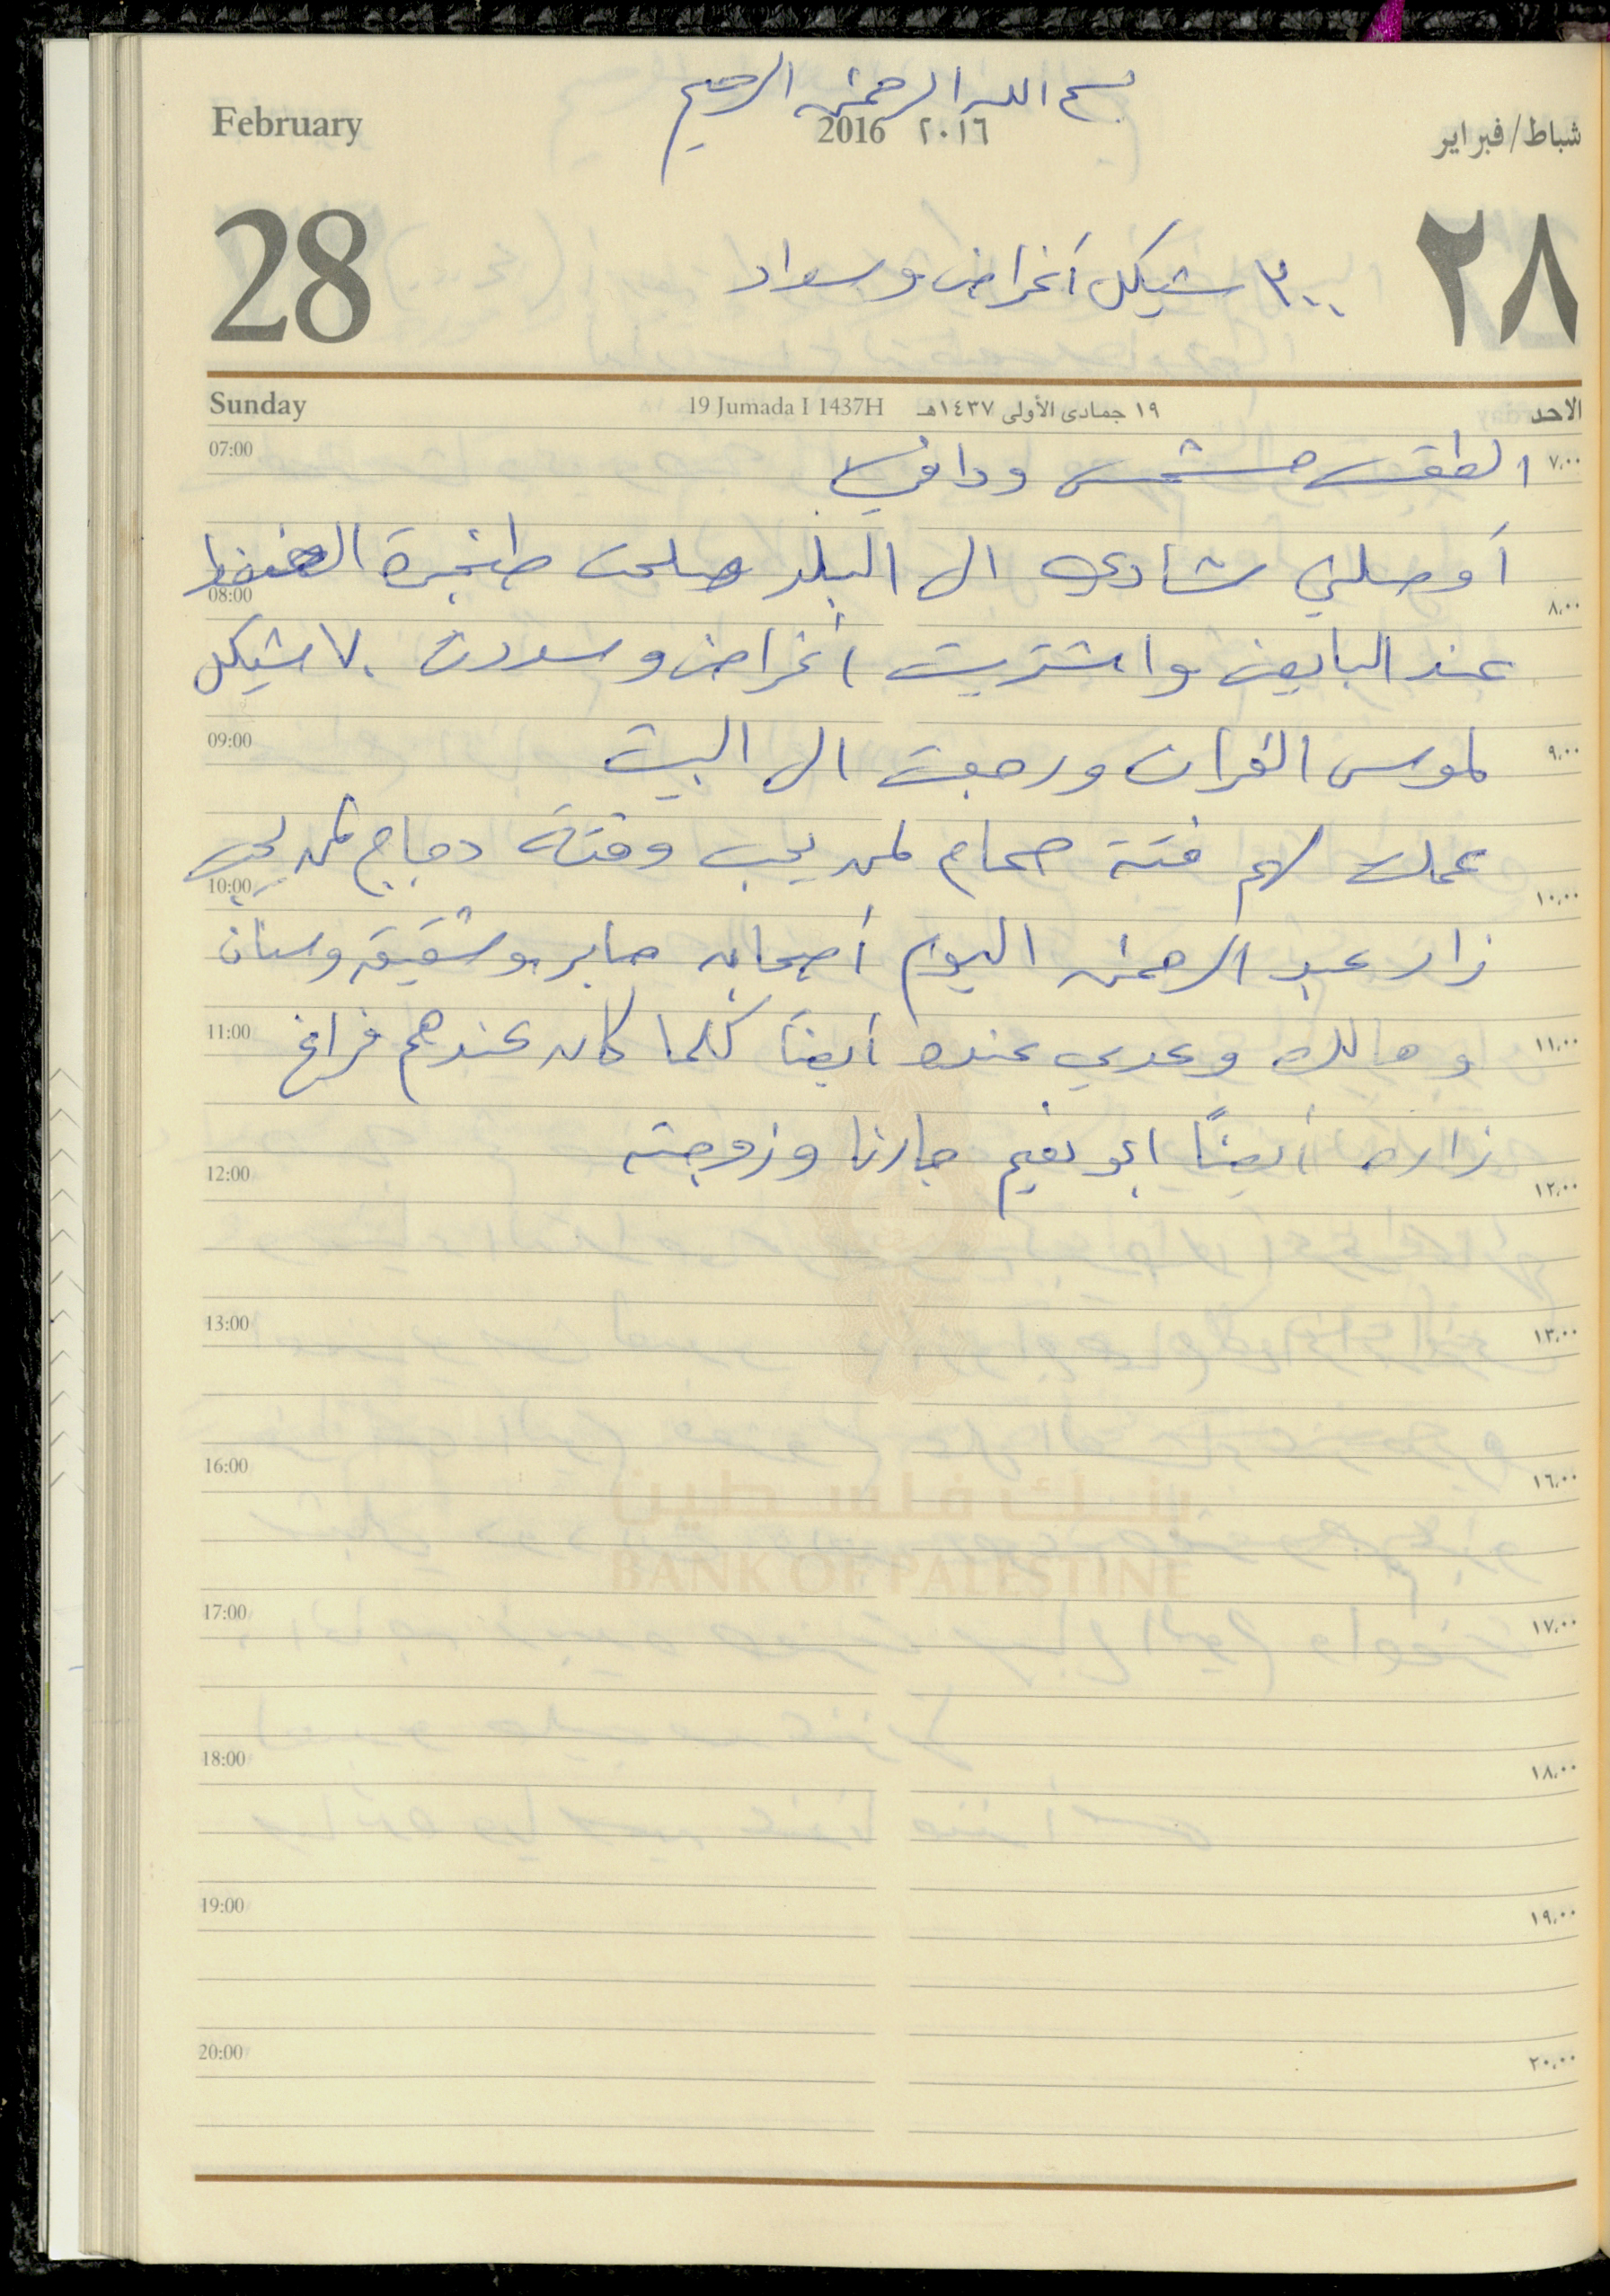 بسم الله الرحمن الرحيم
February 2016 ٢٠١٦ شباط/فبراير
28 ٢٨
٣٠٠ شيكل أغراض وسداد
Sunday 19 Jumada I 1437H ١٩ جمادى الأولى ١٤٣٧هـ الاحد
07:00 ٧،٠٠
الطقس مشمس ودافئ
أوصلني شادي الى البلد صلحت طنجرة الضغط
08:00 ٨،٠٠
عند البايض واشتريت أغراض وسددت ٧٠ شيكل
09:00 ٩،٠٠
لموسى الفران ورجعت الى البيت
عملت لهم فتة حمام لمن يحب وفتة دجاج لمن يحب
10:00 ١٠،٠٠
زار عبد الرحمن اليوم أصحابه صابر وشقيقه وسنان
11:00 ١١،٠٠
ومالك وعدي عنده أيضاً كلما كان عندهم فراغ
زاره أيضاً ابو نعيم جارنا وزوجته
12:00 ١٢،٠٠
13:00 ١٣،٠٠
16:00 ١٦،٠٠
بنك فلسطين
BANK OF PALESTINE
17:00 ١٧،٠٠
18:00 ١٨،٠٠
19:00 ١٩،٠٠
20:00 ٢٠،٠٠